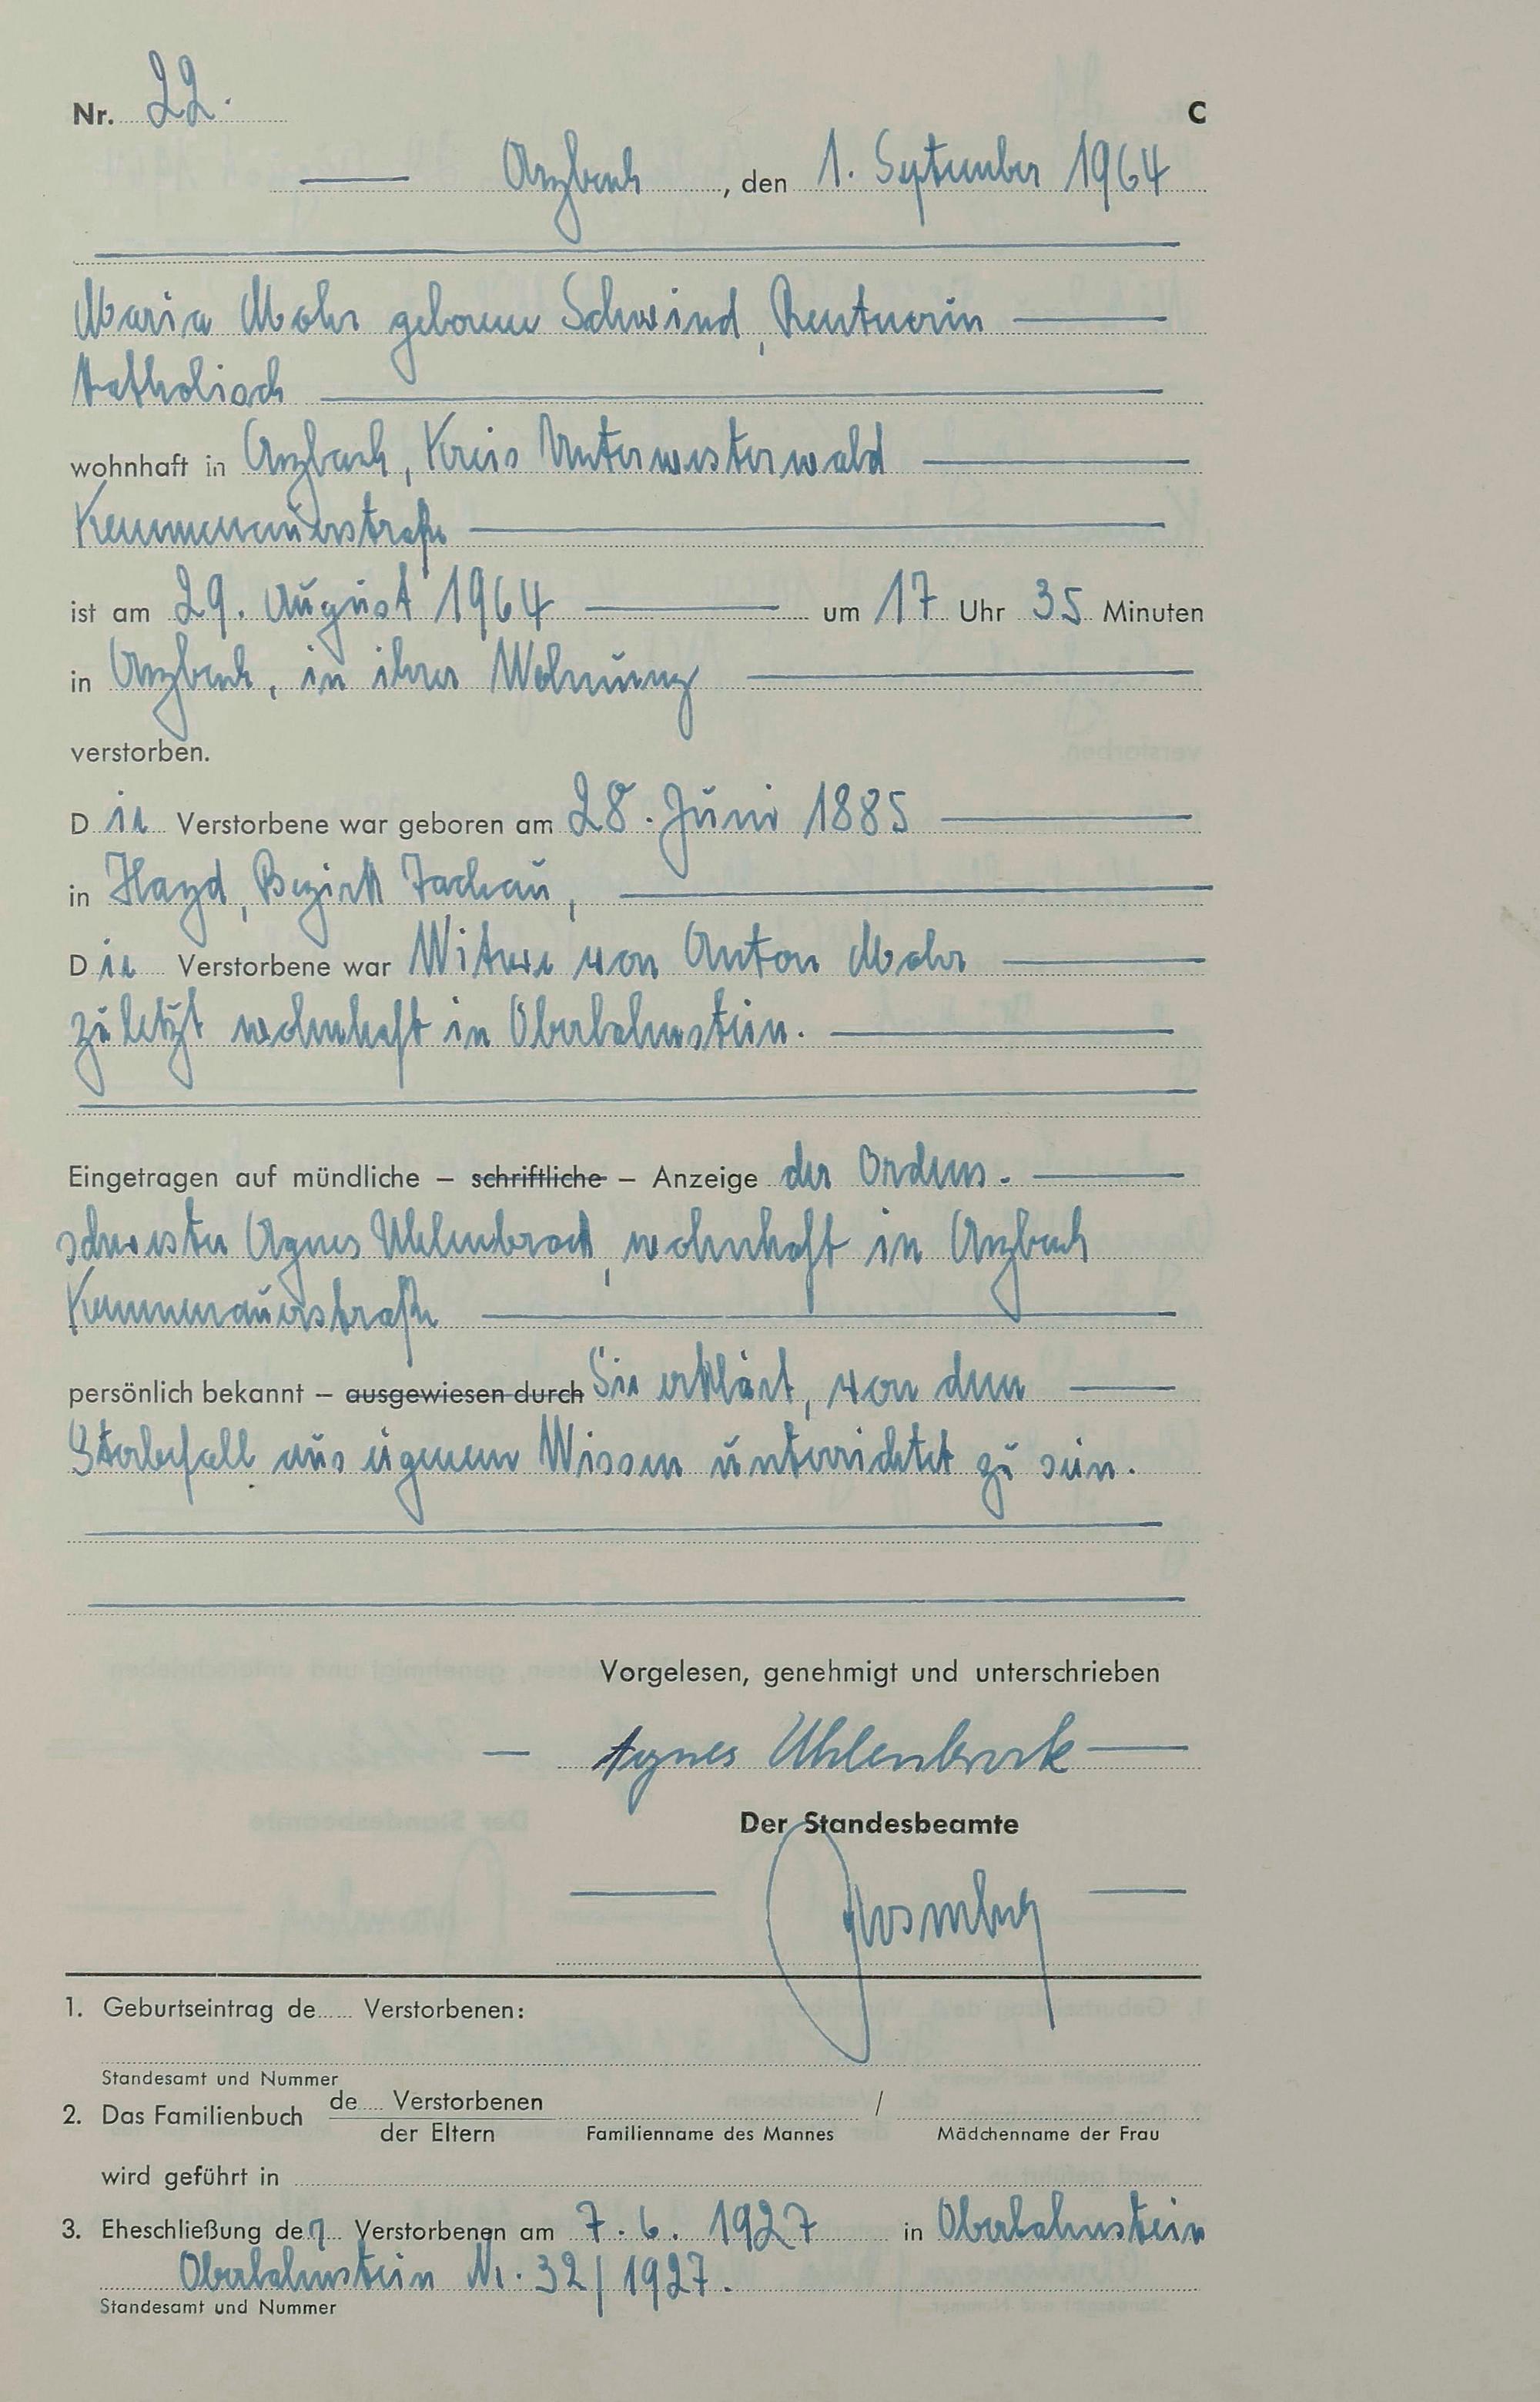 Nr. 22. C
Arzbach, den 1. September 1964
Maria Mohr geborene Schwind, Rentnerin
katholisch
wohnhaft in Arzbach, Kreis Unterwesterwald
Kemmenauerstraße
ist am 29. August 1964 um 17 Uhr 35 Minuten
in Arzbach, in ihrer Wohnung
verstorben.
Die Verstorbene war geboren am 28. Juni 1885
in Hayd, Bezirk Tachau,
Die Verstorbene war Witwe von Anton Mohr
zuletzt wohnhaft in Oberlahnstein.
Eingetragen auf mündliche – schriftliche – Anzeige der Ordens-
schwester Agnes Uhlenbrock, wohnhaft in Arzbach
Kemmenauerstraße
persönlich bekannt – ausgewiesen durch Sie erklärt, von dem
Sterbefall aus eigenem Wissen unterrichtet zu sein.
Vorgelesen, genehmigt und unterschrieben
Agnes Uhlenbrock
Der Standesbeamte
1. Geburtseintrag de..... Verstorbenen:
Standesamt und Nummer
2. Das Familienbuch de..... Verstorbenen /
der Eltern Familienname des Mannes Mädchenname der Frau
wird geführt in
3. Eheschließung der Verstorbenen am 7. 6. 1927 in Oberlahnstein
Oberlahnstein Nr. 32/1927.
Standesamt und Nummer